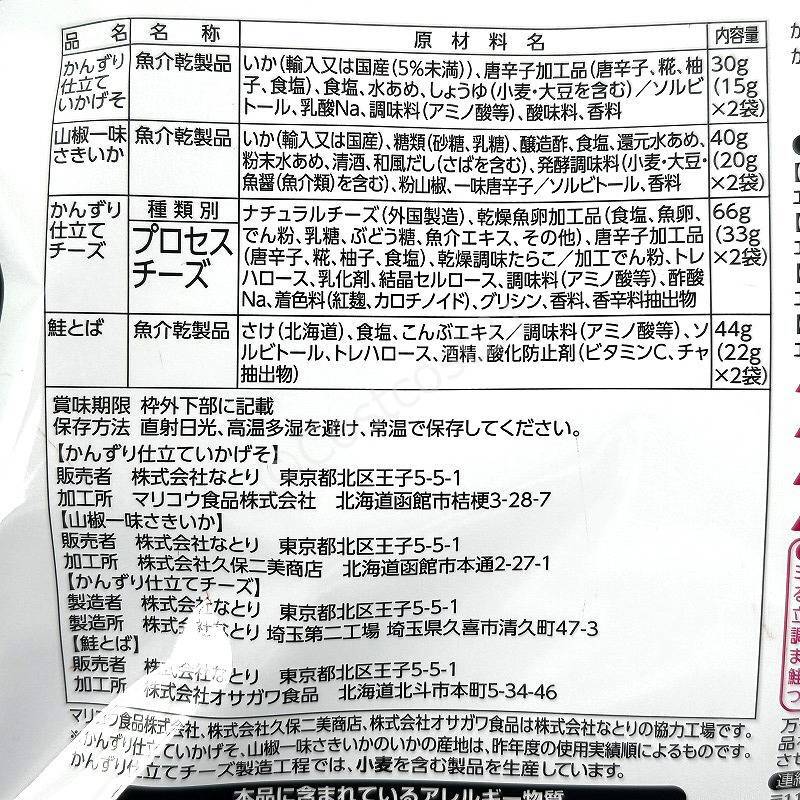 品名 名称 原材料名 内容量
かんずり仕立ていかげそ 魚介乾製品 いか(輸入又は国産(5%未満))、唐辛子加工品(唐辛子、糀、柚 30g
子、食塩)、食塩、水あめ、しょうゆ(小麦・大豆を含む)/ソルビ (15g
トール、乳酸Na、調味料(アミノ酸等)、酸味料、香料 ×2袋)
山椒一味さきいか 魚介乾製品 いか(輸入又は国産)、糖類(砂糖、乳糖)、醸造酢、食塩、還元水あめ、 40g
粉末水あめ、清酒、和風だし(さばを含む)、発酵調味料(小麦・大豆・ (20g
魚醤(魚介類)を含む)、粉山椒、一味唐辛子/ソルビトール、香料 ×2袋)
かんずり仕立てチーズ 種類別 ナチュラルチーズ(外国製造)、乾燥魚卵加工品(食塩、魚卵、 66g
プロセスチーズ でん粉、乳糖、ぶどう糖、魚介エキス、その他)、唐辛子加工品 (33g
(唐辛子、糀、柚子、食塩)、乾燥調味たらこ/加工でん粉、トレ ×2袋)
ハロース、乳化剤、結晶セルロース、調味料(アミノ酸等)、酢酸
Na、着色料(紅麹、カロチノイド)、グリシン、香料、香辛料抽出物
鮭とば 魚介乾製品 さけ(北海道)、食塩、こんぶエキス/調味料(アミノ酸等)、ソ 44g
ルビトール、トレハロース、酒精、酸化防止剤(ビタミンC、チャ (22g
抽出物) ×2袋)
賞味期限 枠外下部に記載
保存方法 直射日光、高温多湿を避け、常温で保存してください。
【かんずり仕立ていかげそ】
販売者 株式会社なとり 東京都北区王子5-5-1
加工所 マリコウ食品株式会社 北海道函館市桔梗3-28-7
【山椒一味さきいか】
販売者 株式会社なとり 東京都北区王子5-5-1
加工所 株式会社久保二美商店 北海道函館市本通2-27-1
【かんずり仕立てチーズ】
製造者 株式会社なとり 東京都北区王子5-5-1
製造所 株式会社なとり 埼玉第二工場 埼玉県久喜市清久町47-3
【鮭とば】
販売者 株式会社なとり 東京都北区王子5-5-1
加工所 株式会社オサガワ食品 北海道北斗市本町5-34-46
マリコウ食品株式会社、株式会社久保二美商店、株式会社オサガワ食品は株式会社なとりの協力工場です。
※かんずり仕立ていかげそ、山椒一味さきいかのいかの産地は、昨年度の使用実績順によるものです。
かんずり仕立てチーズ製造工程では、小麦を含む製品を生産しています。
本品に含まれているアレルギー物質